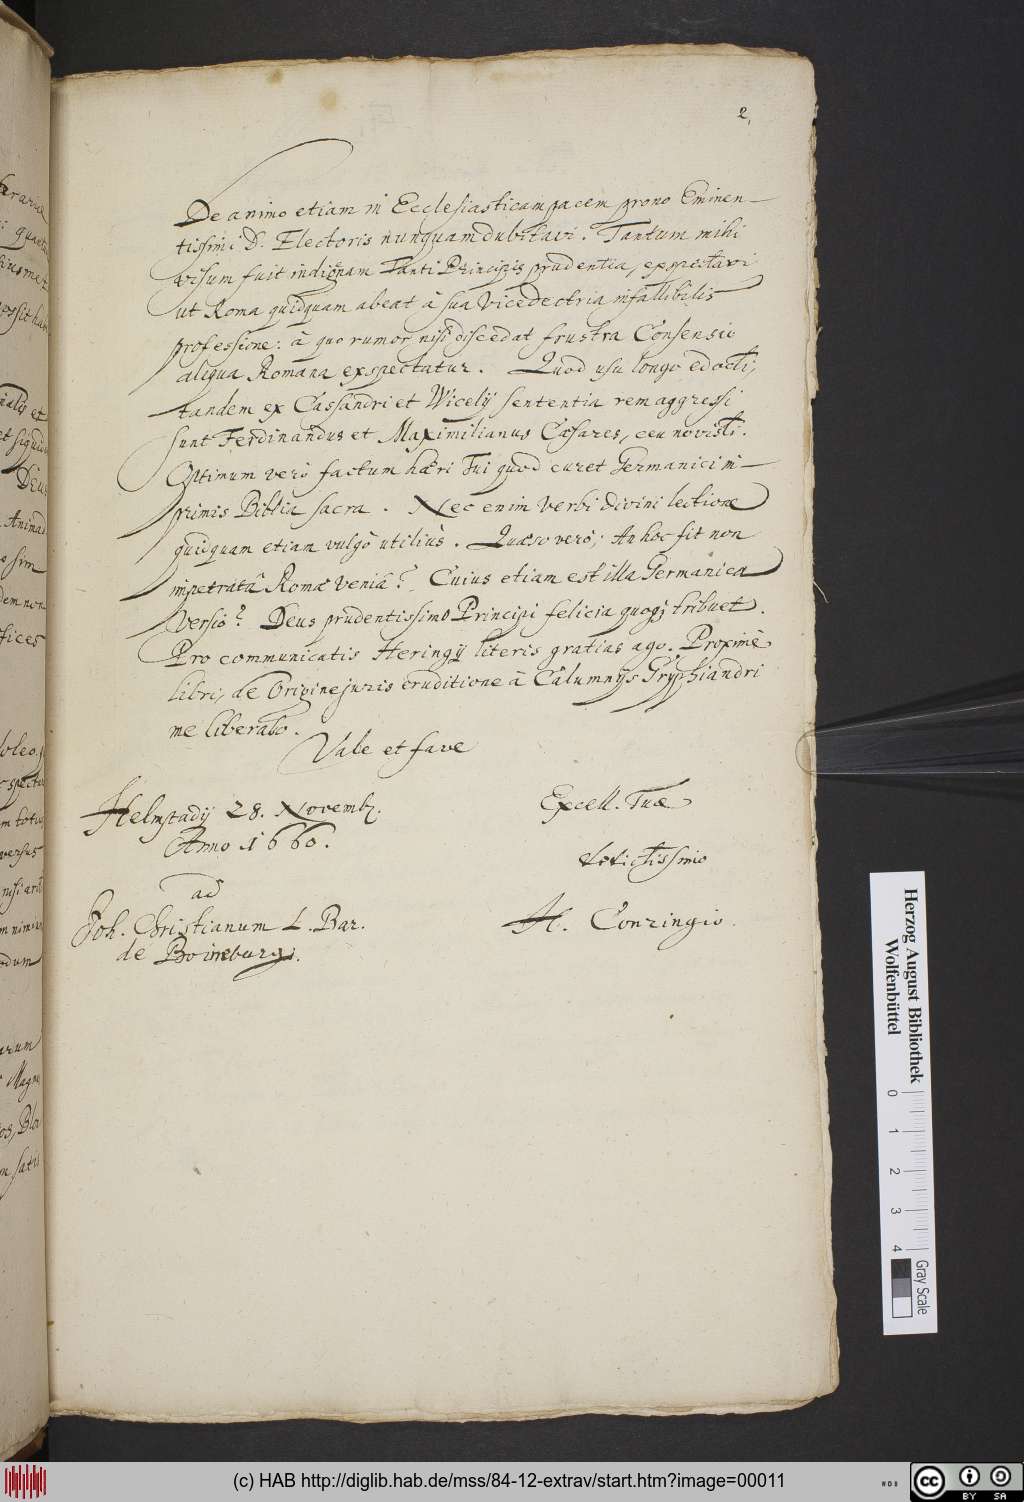 2,
De animo etiam in Ecclesiasticam pacem prono Eminen-
tissimi D. Electoris nunquam dubitavi. Tantum mihi
visum fuit indignam Tanti Principis prudentia, exspectavi
ut Roma quidquam abeat à sua Vicedectria infallibilis
professione: à quo rumor nisi discedat, frustra Consensio
aliqua Romana exspectatur. Quod usu longo edocti,
tandem ex Cassandri et Wicelÿ sententia rem aggressi
sunt Ferdinandus et Maximilianus Cæsares, ceu novisti.
Optimum verò factum hæri Tui quod curet Germanici in-
primis Biblia sacra. Nec enim verbi divini lectione
quidquam etiam vulgò utilius. Quæso verò; An hoc sit non
impetratâ Romæ veniâ? Cuius etiam est illa Germanica
Versio? Deus prudentissimo Principi felicia quoqꝫ tribuet.
Pro communicatis Heringÿ literis gratias ago. Proximè
libri, de Origine juris eruditione à Calumnÿs Grÿphiandri
me liberabo.
Vale et fave
Helmstadÿ 28. Novembr.
Anno 1660.
Excell. Tuæ
devictissimo
ad
Joh. Christianum L. Bar.
de Boineburg.
H. Conringio.
rarum
quant
Deus
Animad
sim
dem non
fices
doleo
m totus
versus
nisi
dum
arum
Magn
Herzog August Bibliothek
Wolfenbüttel
0 1 2 3 4
Gray Scale
(c) HAB http://diglib.hab.de/mss/84-12-extrav/start.htm?image=00011
cc BY SA